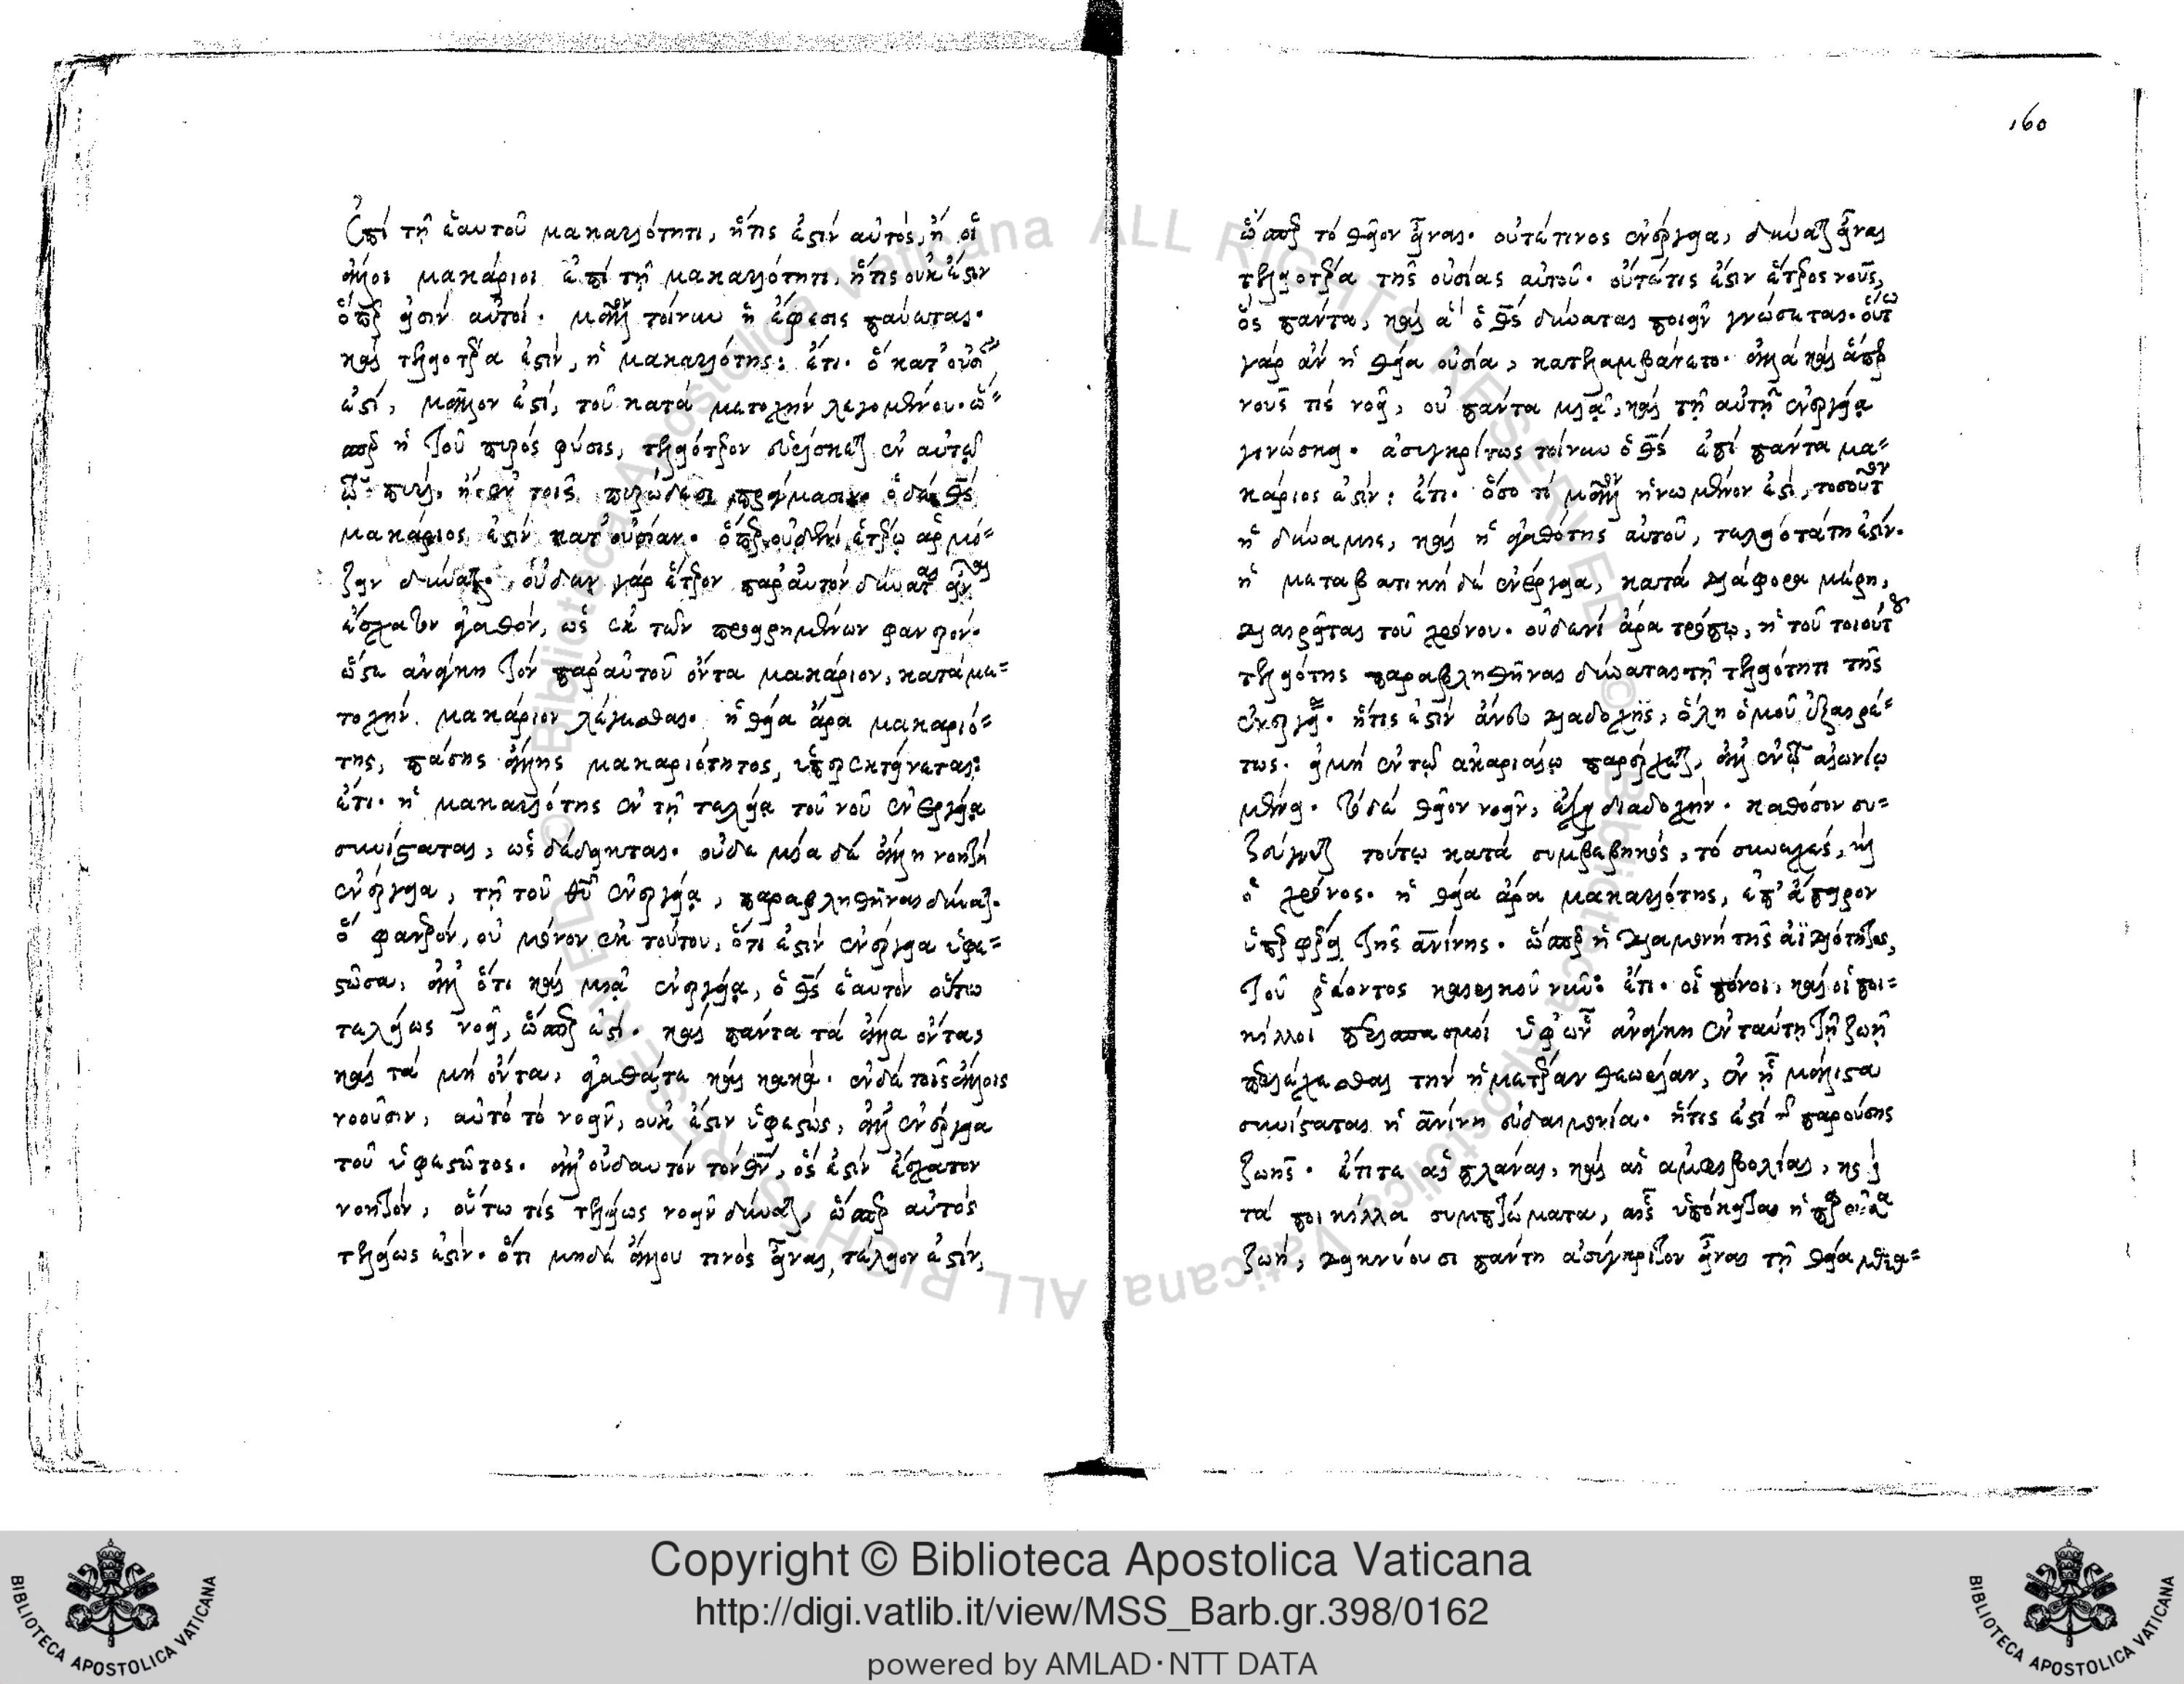 ἐπὶ τῇ ἑαυτοῦ μακαριότητι, ἥτις ἐστὶν αὐτὸς, ἢ οἱ
ἄλλοι μακάριοι ἐπὶ τῇ μακαριότητι, ἥτις οὐκ ἔστιν
ὅπερ εἰσὶν αὐτοί. μᾶλλον τοίνυν ἡ ἔφεσις παύεται.
καὶ τελειοτέρα ἐστὶν, ἡ μακαριότης: ἔτι. ὃ κατ' οὐσίαν
ἐστὶ, μεῖζον ἐστὶ, τοῦ κατὰ μετοχὴν λεγομένου. ὥσ=
περ ἡ τοῦ πυρὸς φύσις, τελειότερον εὑρίσκεται ἐν αὐτῷ
τῷ πυρὶ. ἢ ἐν τοῖς πυρώδεσι πράγμασιν. ὁ δὲ θς
μακάριος ἐστὶν κατ' οὐσίαν. ὅπερ οὐδενὶ ἑτέρῳ ἁρμό=
ζειν δύναται. οὐδὲν γὰρ ἕτερον παρ' αὐτὸν δύναται εἶναι
ἔσχατον ἀγαθὸν, ὡς ἐκ τῶν προειρημένων φανερόν.
ὥστε ἀνάγκη τὸν παρ' αὐτοῦ ὄντα μακάριον, κατὰ με=
τοχὴν μακάριον λέγεσθαι. ἡ θεία ἄρα μακαριό=
της, πάσης ἄλλης μακαριότητος, ὑπερεκτείνεται:
ἔτι. ἡ μακαριότης ἐν τῇ τελείᾳ τοῦ νοῦ ἐνεργείᾳ
συνίσταται, ὡς δέδεικται. οὐδεμία δὲ ἄλλη νοητὴ
ἐνέργεια, τῇ τοῦ θῦ ἐνεργείᾳ, παραβληθῆναι δύναται.
ὃ φανερὸν, οὐ μόνον ἐκ τούτου, ὅτι ἐστὶν ἐνέργεια ὑφε=
στῶσα, ἀλλ' ὅτι καὶ μιᾷ ἐνεργείᾳ, ὁ θς ἑαυτὸν οὕτω
τελείως νοεῖ, ὥσπερ ἐστὶ. καὶ πάντα τὰ ἄλλα ὄντα,
καὶ τὰ μὴ ὄντα, ἀγαθά τε καὶ κακά. ἐν δὲ τοῖς ἄλλοις
νοοῦσιν, αὐτὸ τὸ νοεῖν, οὐκ ἔστιν ὑφεστὼς, ἀλλ' ἐνέργεια
τοῦ ὑφεστῶτος. ἀλλ' οὐδ' αὐτὸν τὸν θν, ὅς ἐστὶν ἔσχατον
νοητὸν, οὕτω τὶς τελείως νοεῖν δύναται, ὥσπερ αὐτὸς
τελείως ἐστὶν. ὅτι μηδὲ ἄλλου τινὸς εἶναι, τέλειον ἐστὶν,
160
ὥσπερ τὸ θεῖον εἶναι. οὔτέ τινος ἐνέργεια, δύναται εἶναι
τελειοτέρα τῆς οὐσίας αὐτοῦ. οὔτέ τις ἐστὶν ἕτερος νοῦς,
ὃς πάντα, καὶ ἃ ὁ θς δύναται ποιεῖν γνώσεται. οὕτω
γὰρ ἂν ἡ θεία οὐσία, κατελαμβάνετο. ἀλλὰ καὶ ἅπερ
νοῦς τὶς νοεῖ, οὐ πάντα μιᾷ, καὶ τῇ αὐτῇ ἐνεργείᾳ
γινώσκει. ἀσυγκρίτως τοίνυν ὁ θς ἐπὶ πάντα μα=
κάριος ἐστίν: ἔτι. ὅσο τὶ μᾶλλον ἡνωμένον ἐστὶ, τοσοῦτον
ἡ δύναμις, καὶ ἡ ἀγαθότης αὐτοῦ, τελειότατη ἐστίν.
ἡ μεταβατικὴ δὲ ἐνέργεια, κατὰ διάφορα μέρη,
διαιρεῖται τοῦ χρόνου. οὐδενὶ ἄρα τρόπῳ, ἡ τοῦ τοιούτου
τελειότης παραβληθῆναι δύναται τῇ τελειότητι τῆς
ἐνεργείας. ἥτις ἐστὶν ἄνευ διαδοχῆς, ὅλη ὁμοῦ ἐξαιρέ=
τως. εἰ μὴ ἐν τῷ ἀκαριαίῳ παρέρχεται, ἀλλ' ἐν τῷ αἰωνίῳ
μένει. τὸ δὲ θεῖον νοεῖν, ἔχει διαδοχὴν. καθόσον συ=
ζεύγνυται τούτῳ κατὰ συμβεβηκὸς, τὸ συνεχὲς, καὶ
ὁ χρόνος. ἡ θεία ἄρα μακαριότης, ἐπ' ἄπειρον
ὑπερφέρει τῆς ἀνίνης. ὥσπερ ἡ διαμονὴ τῆς ἀϊδιότητος,
τοῦ ῥέοντος καιρικοῦ νῦν: ἔτι. οἱ πόνοι, καὶ οἱ ποι=
κίλλοι περισπασμοὶ ὑφ' ὧν ἀνάγκη ἐν ταύτῃ τῇ ζωῇ
περιέχεσθαι τὴν ἡμετέραν θεωρίαν, ἐν ᾗ μάλιστα
συνίσταται ἡ ἀνίνη εὐδαιμονία. ἥτις ἐστὶ τῆς παρούσης
ζωῆς. ἔτι τε αἱ πλάναι, καὶ αἱ ἀμφιβολίαι, καὶ
τὰ ποικίλλα συμπτώματα, αἷς ὑπόκειται ἡ παροῦσα
ζωὴ, δεικνύουσι πάντη ἀσύγκριτον εἶναι τῇ θείᾳ